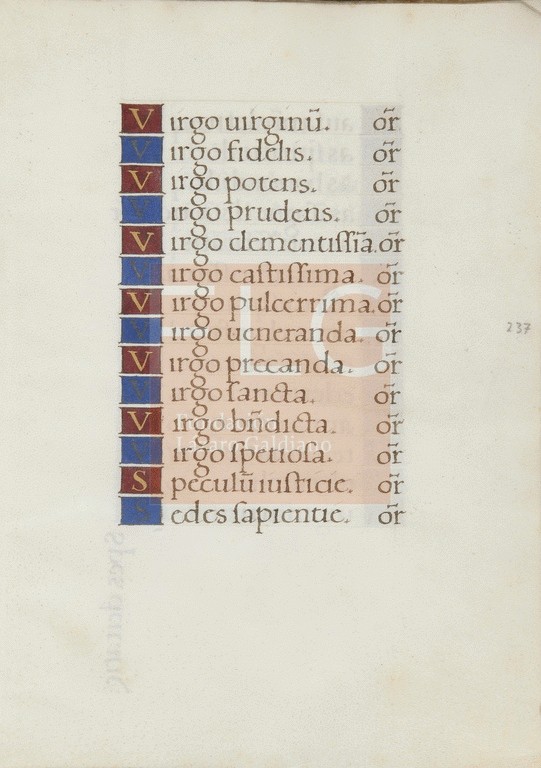 Virgo uirginū. or̄
Virgo fidelis. or̄
Virgo potens. or̄
Virgo prudens. or̄
Virgo clementiſſīa. or̄
Virgo caſtiſſima. or̄
Virgo pulcerrima. or̄
Virgo ueneranda. or̄
Virgo precanda. or̄
Virgo ſancta. or̄
Virgo bn̄dicta. or̄
Virgo ſpetioſa. or̄
Speculū iuſticie. or̄
Sedes ſapientie. or̄
237
FLG
Fundación
Lázaro Galdiano